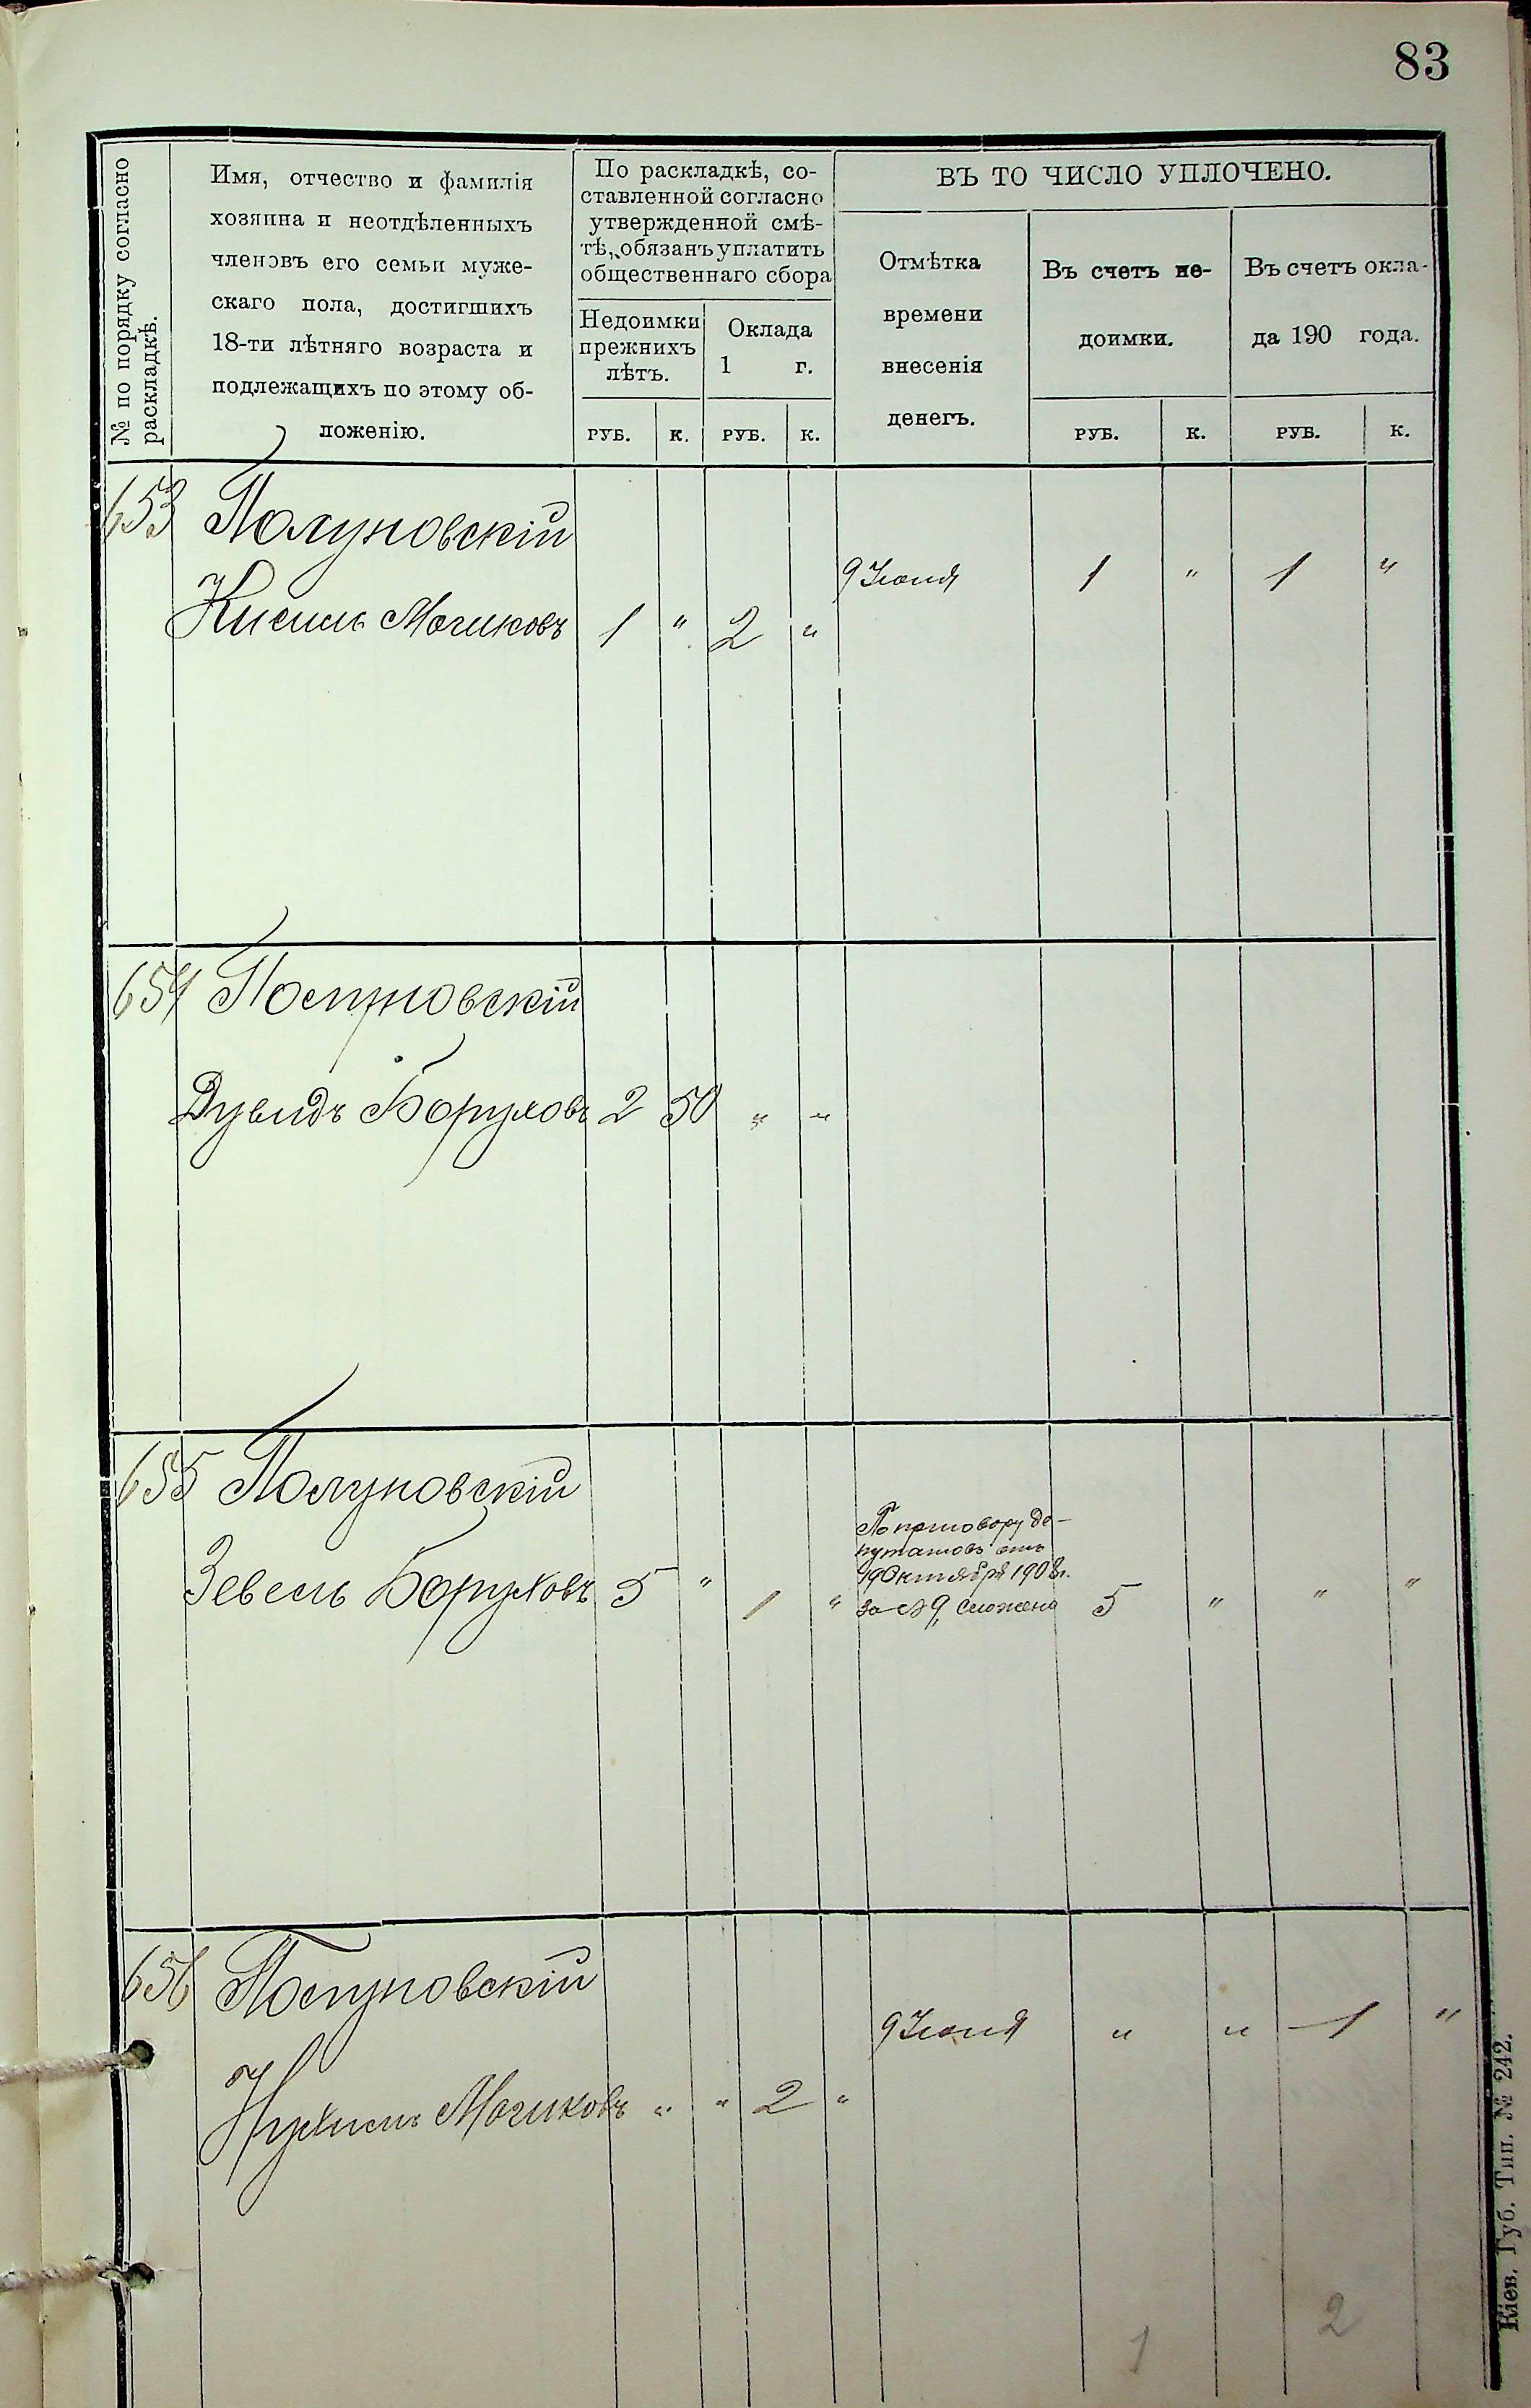 83
№ по порядку согласно
раскладкѣ.
Имя, отчество и фамилія
хозяина и неотдѣленныхъ
членовъ его семьи муже-
скаго пола, достигшихъ
18-ти лѣтняго возраста и
подлежащихъ по этому об-
ложенію.
По раскладкѣ, со-
ставленной согласно
утвержденной смѣ-
тѣ, обязанъ уплатить
общественнаго сбора
Недоимки
прежнихъ
лѣтъ.
Оклада
1 г.
ВЪ ТО ЧИСЛО УПЛОЧЕНО.
Отмѣтка
времени
внесенія
денегъ.
Въ счетъ не-
доимки.
Въ счетъ окла-
да 190 года.
РУБ. К. РУБ. К. РУБ. К. РУБ. К.
653 Полуновскій
9 Іюня 1 " 1 "
Кисиль Мошковъ 1 " 2 "
654 Полуновскій
Дувидъ Боруховъ 2 50 " "
655 Полуновскій
По приговору де-
путатовъ отъ
19 Октября 1908 г.
Зевель Боруховъ 5 " 1 " за № 9, сложена 5 " " "
656 Полуновскій
9 Іюня " " 1 "
Нухимъ " " 2 "
1 2
Кіев. Губ. Тип. № 242.